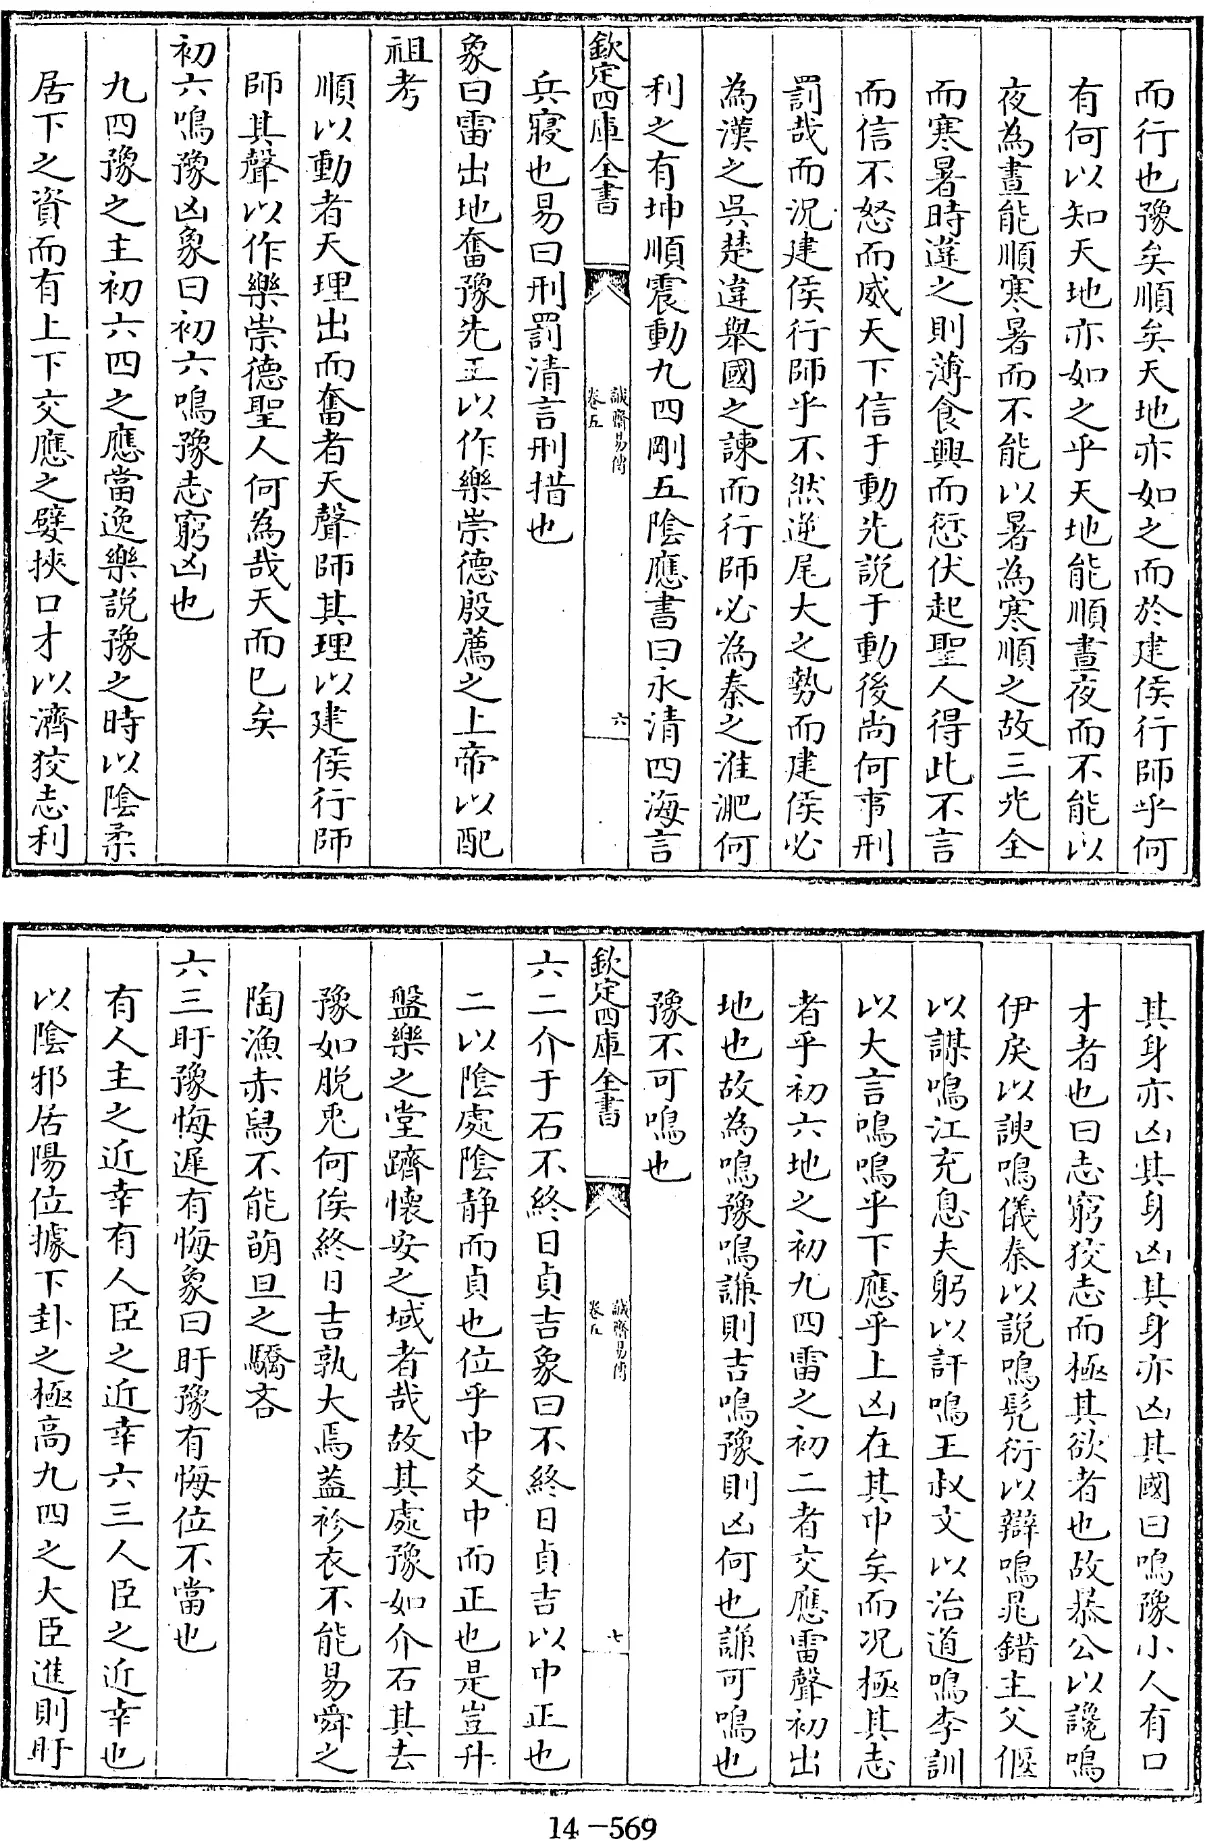 而行也豫矣順矣天地亦如之而於建侯行師乎何
有何以知天地亦如之乎天地能順晝夜而不能以
夜為晝能順寒暑而不能以暑為寒順之故三光全
而寒暑時違之則薄食興而愆伏起聖人得此不言
而信不怒而威天下信于動先說于動後尚何事刑
罰哉而況建侯行師乎不然逆尾大之勢而建侯必
為漢之吳楚違舉國之諫而行師必為秦之淮淝何
利之有坤順震動九四剛五陰應書曰永清四海言
欽定四庫全書
誠齋易傳
卷五
六
兵寢也易曰刑罰清言刑措也
象曰雷出地奮豫先王以作樂崇德殷薦之上帝以配
祖考
順以動者天理出而奮者天聲師其理以建侯行師
師其聲以作樂崇德聖人何為哉天而已矣
初六鳴豫凶象曰初六鳴豫志窮凶也
九四豫之主初六四之應當逸樂說豫之時以陰柔
居下之資而有上下交應之嬖挾口才以濟狡志利
其身亦凶其身凶其身亦凶其國曰鳴豫小人有口
才者也曰志窮狡志而極其欲者也故暴公以讒鳴
伊戾以諛鳴儀秦以說鳴髠衍以辯鳴鼂錯主父偃
以謀鳴江充息夫躬以訐鳴王叔文以治道鳴李訓
以大言鳴鳴乎下應乎上凶在其中矣而况極其志
者乎初六地之初九四雷之初二者交應雷聲初出
地也故為鳴豫鳴謙則吉鳴豫則凶何也謙可鳴也
豫不可鳴也
欽定四庫全書
誠齋易傳
卷五
七
六二介于石不終日貞吉象曰不終日貞吉以中正也
二以陰處陰静而貞也位乎中爻中而正也是豈升
盤樂之堂躋懷安之域者哉故其處豫如介石其去
豫如脱兎何俟終日吉孰大焉蓋袗衣不能易舜之
陶漁赤舄不能萌旦之驕吝
六三盱豫悔遲有悔象曰盱豫有悔位不當也
有人主之近幸有人臣之近幸六三人臣之近幸也
以陰邪居陽位據下卦之極高九四之大臣進則盱
14-569